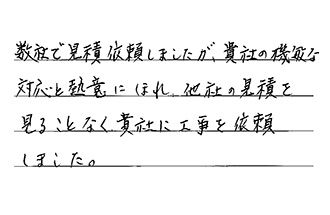 数社で見積依頼しましたが、貴社の機敏な
対応と熱意にほれ、他社の見積を
見ることなく貴社に工事を依頼
しました。